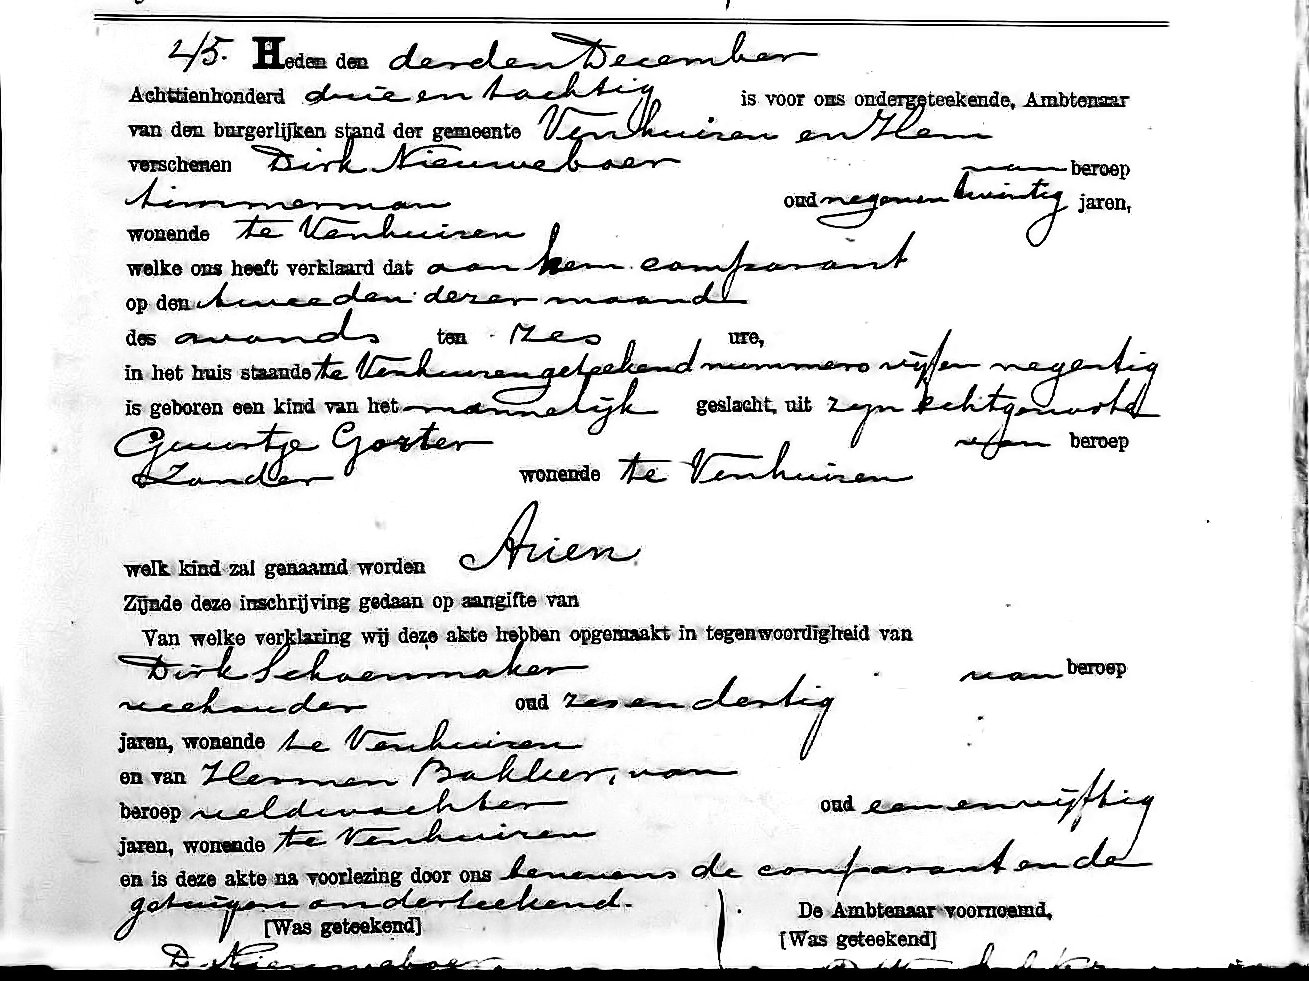 245. Heden den derden December
Achttienhonderd drie en tachtig is voor ons ondergeteekende, Ambtenaar
van den burgerlijken stand der gemeente Venhuizen en Hem
verschenen Dirk Nieuweboer van beroep
timmerman oud negenentwintig jaren,
wonende te Venhuizen
welke ons heeft verklaard dat aan hem comparant
op den tweeden dezer maand
des avonds ten zes ure,
in het huis staande te Venhuizen geteekend nummero vijf en negentig
is geboren een kind van het mannelijk geslacht, uit zijn echtgenoote
Guurtje Gorter van beroep
Zonder wonende te Venhuizen
welk kind zal genaamd worden Arien
Zijnde deze inschrijving gedaan op aangifte van
Van welke verklaring wij deze akte hebben opgemaakt in tegenwoordigheid van
Dirk Schoenmaker van beroep
veehouder oud zes en dertig
jaren, wonende te Venhuizen
en van Harmen Bakker, van
beroep veldwachter oud een en vijftig
jaren, wonende te Venhuizen
en is deze akte na voorlezing door ons benevens de comparant en de
getuigen onderteekend.
[Was geteekend] De Ambtenaar voornoemd,
[Was geteekend]
D. Nieuweboer